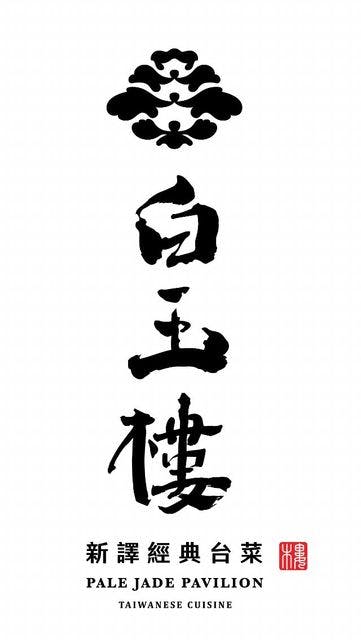 白玉樓
新譯經典台菜 樓
PALE JADE PAVILION
TAIWANESE CUISINE